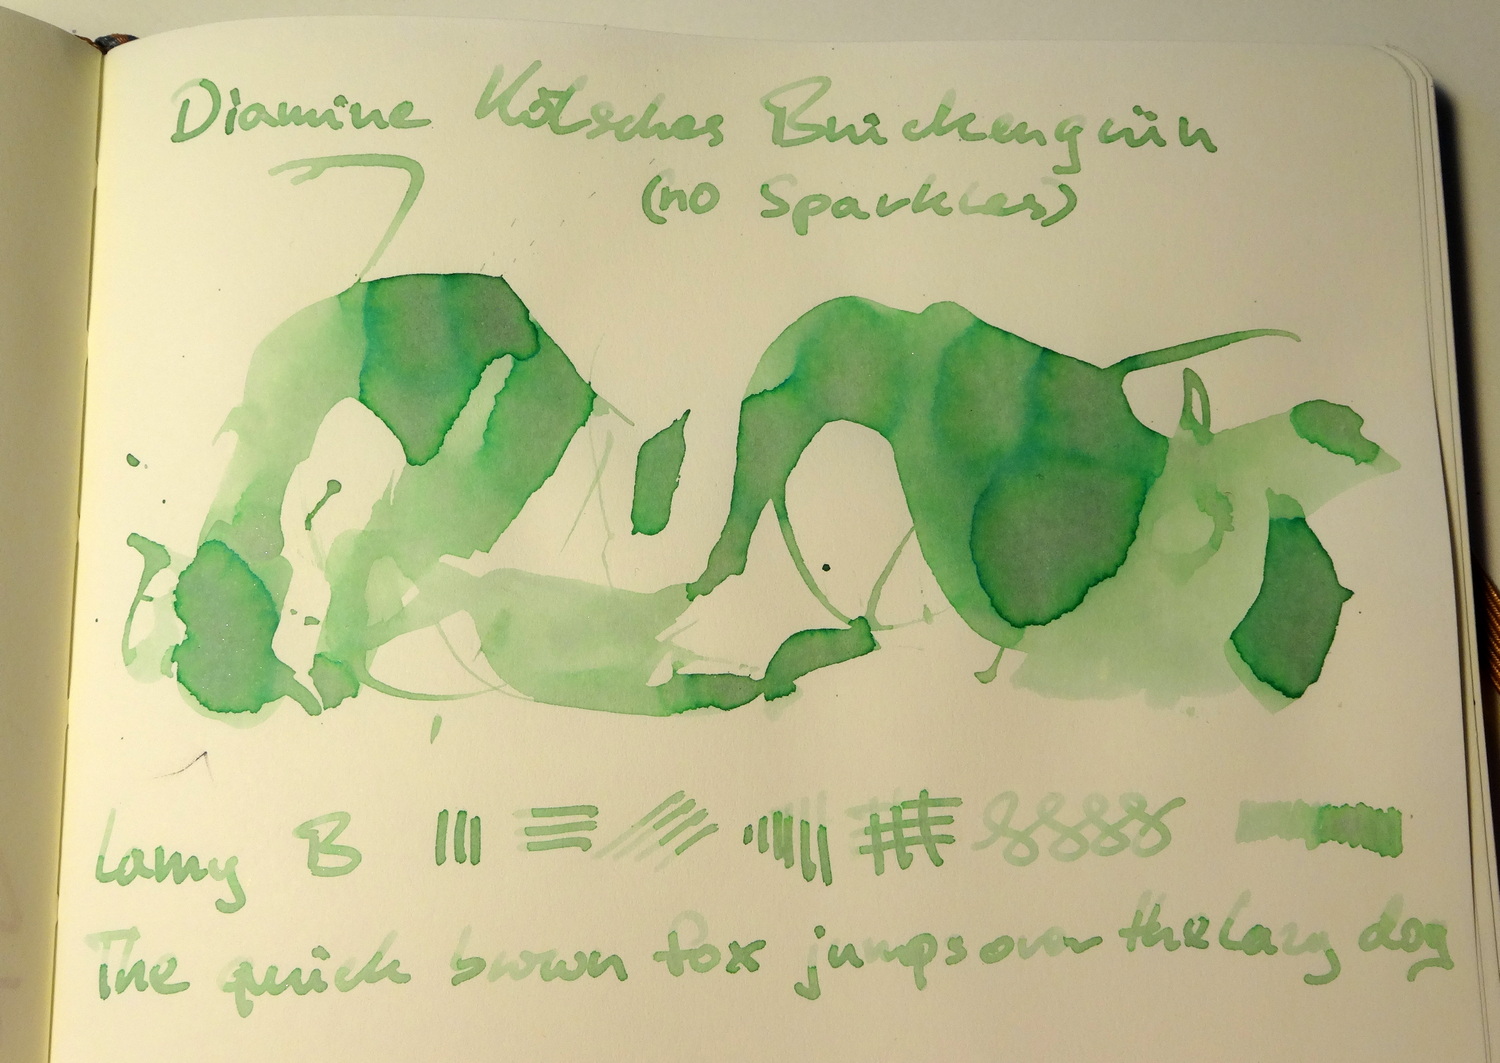 Diamine Kölsches Brückengrün
(no Sparkles)
Lamy B
The quick brown fox jumps over the lazy dog